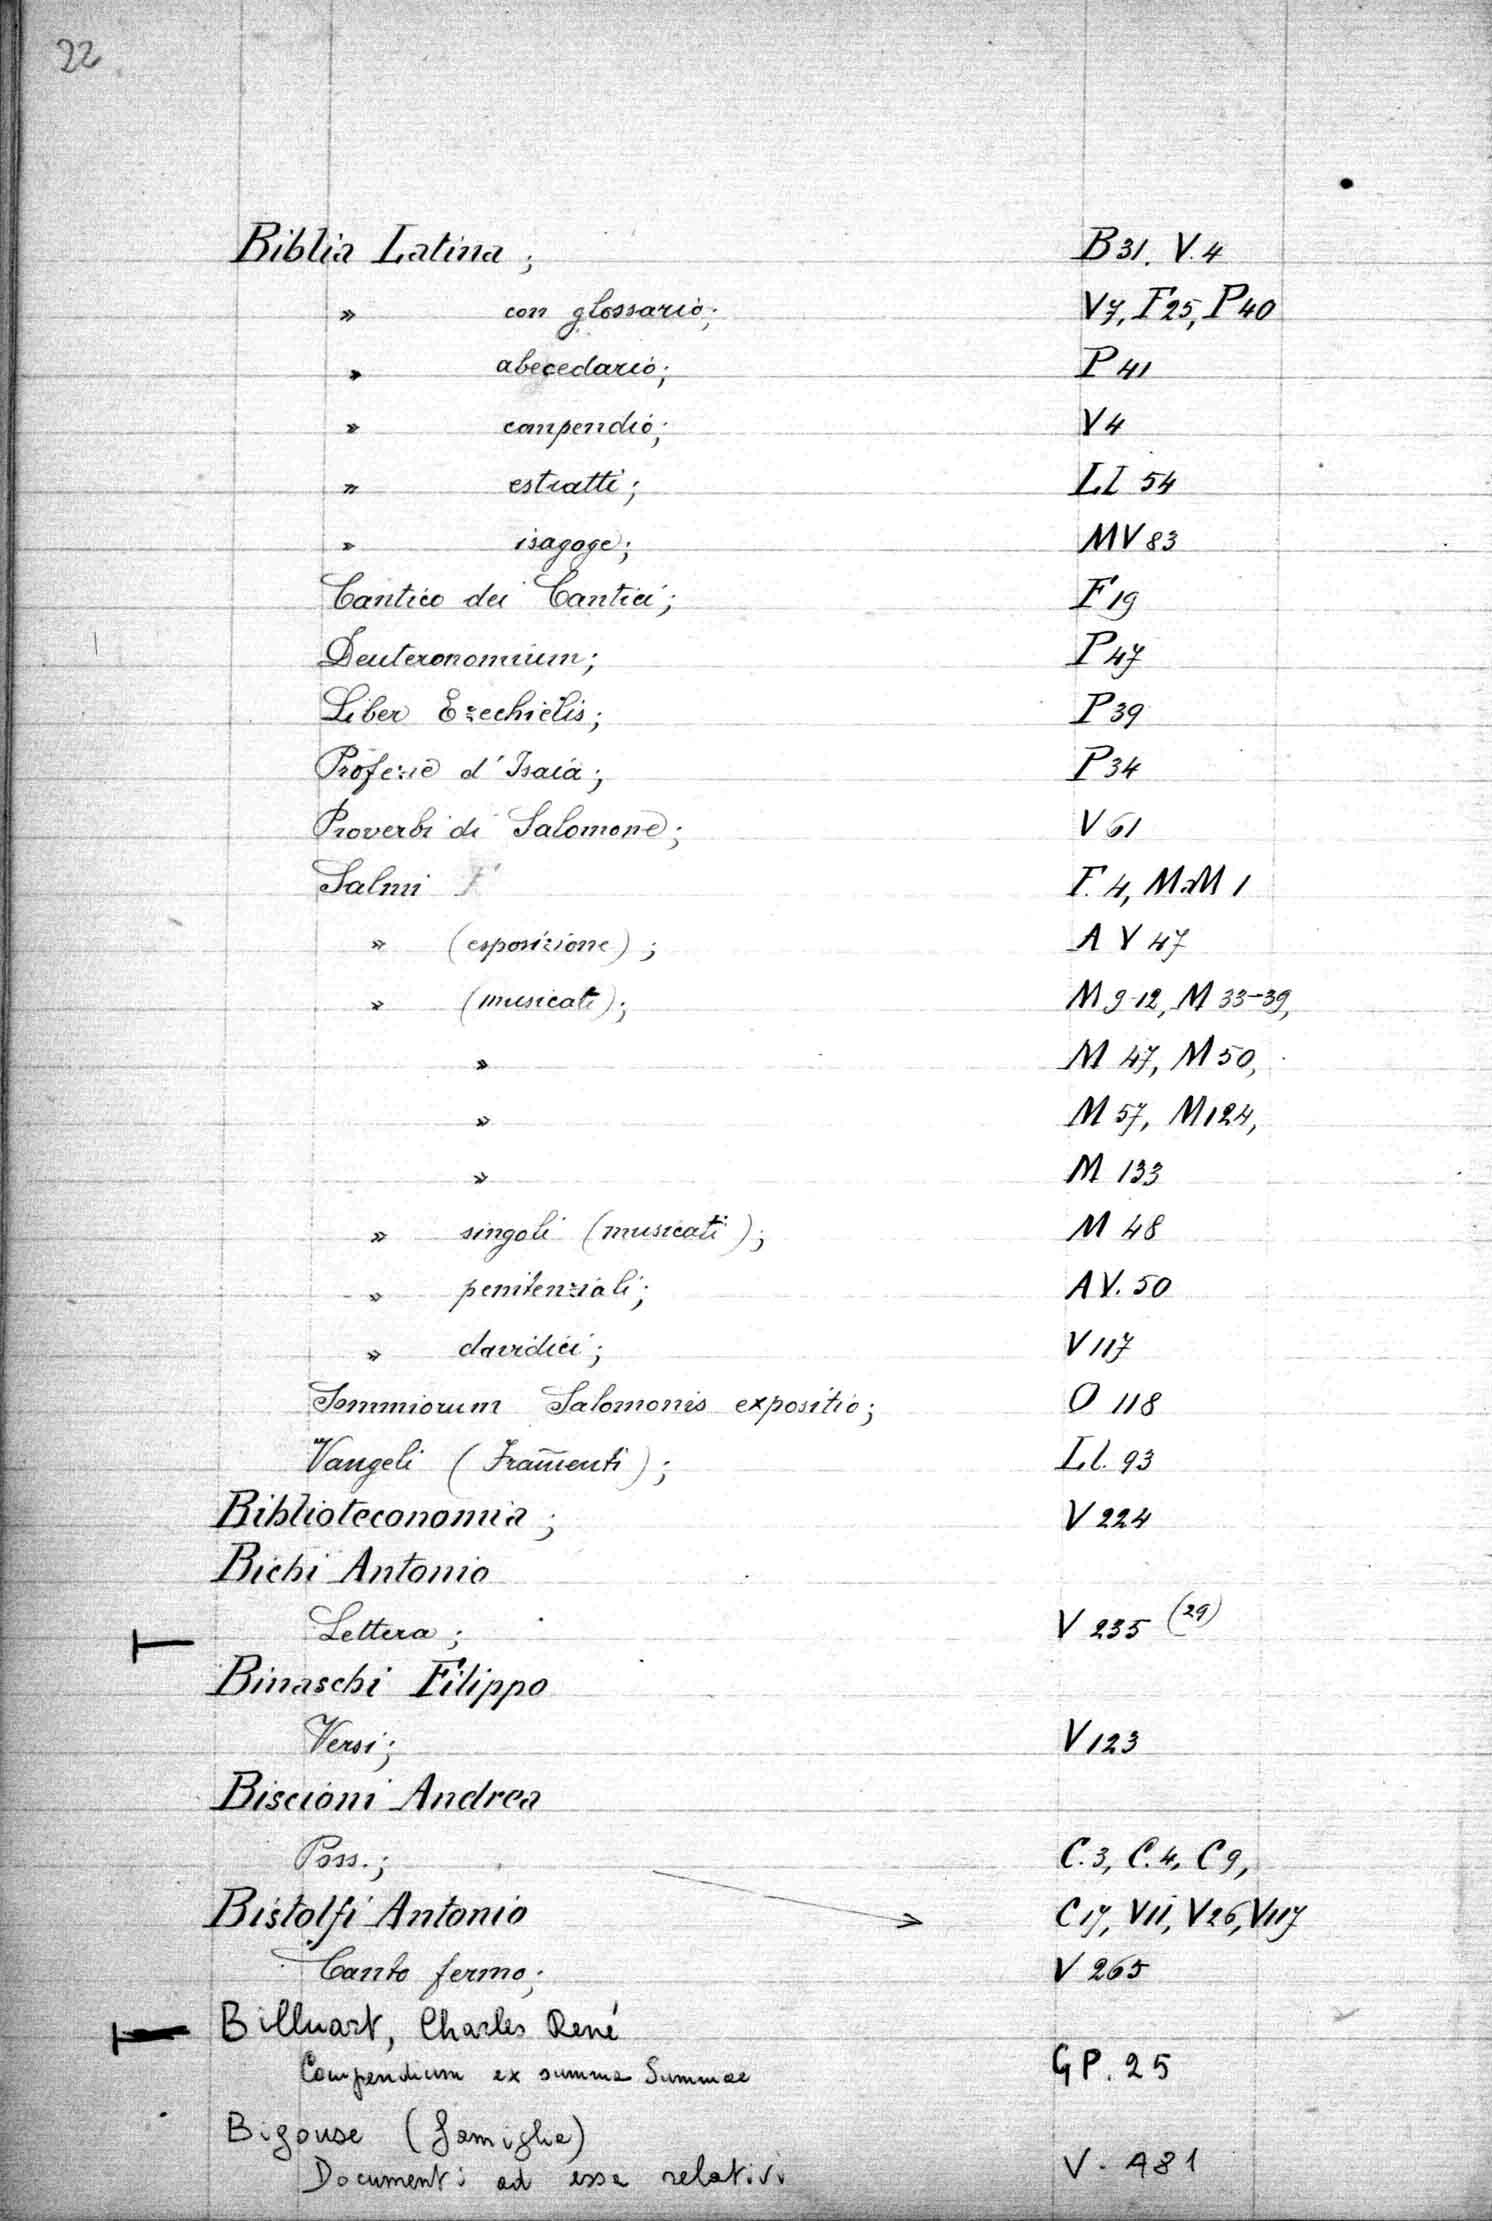 22
Biblia Latina; B 31. V. 4
» con glossario; V 7, F 25, P 40
» abecedario; P 41
» compendio; V 4
» estratti; LI 54
» isagoge; MV 83
Cantico dei Cantici; F 19
Deuteronomium; P 47
Liber Ezechielis; P 39
Profezie d'Isaia; P 34
Proverbi di Salomone; V 61
Salmi F. 4, M.M 1
» (esposizione); A V 47
» (musicati); M 9-12, M 33-39,
» M 47, M 50,
» M 57, M 124,
» M 133
» singoli (musicati); M 48
» penitenziali; A V. 50
» davidici; V 117
Somniorum Salomonis expositio; O 118
Vangeli (Fram̄enti); Ll. 93
Biblioteconomia; V 224
Bichi Antonio
Lettera; V 235 (29)
Binaschi Filippo
Versi; V 123
Biscioni Andrea
Poss.; C. 3, C. 4, C 9,
Bistolfi Antonio C 17, V 11, V 26, V 117
Canto fermo; V 265
Billuart, Charles René
Compendium ex summa Summae GP. 25
Bigouse (famiglia)
Documenti ad essa relativi V. A81